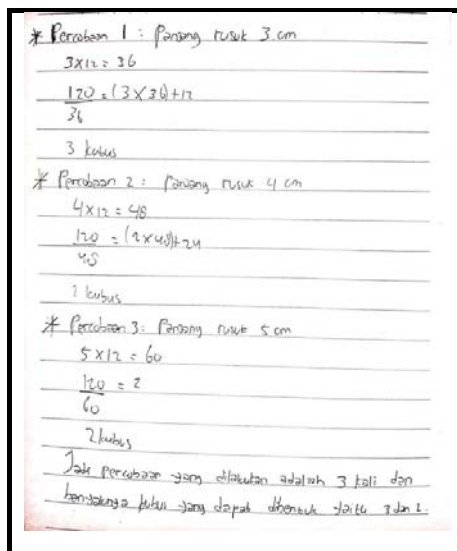 * Percobaan 1 : Panjang rusuk 3 cm
3x12 = 36
120 = (3 x 36) + 12
36
3 kubus
* Percobaan 2 : Panjang rusuk 4 cm
4x12 = 48
120 = (2x48)+24
48
2 kubus
* Percobaan 3 : Panjang rusuk 5 cm
5 x 12 = 60
120 = 2
60
2 kubus
Jadi percobaan yang dilakukan adalah 3 kali dan
banyaknya kubus yang dapat dibentuk yaitu 3 dan 2.